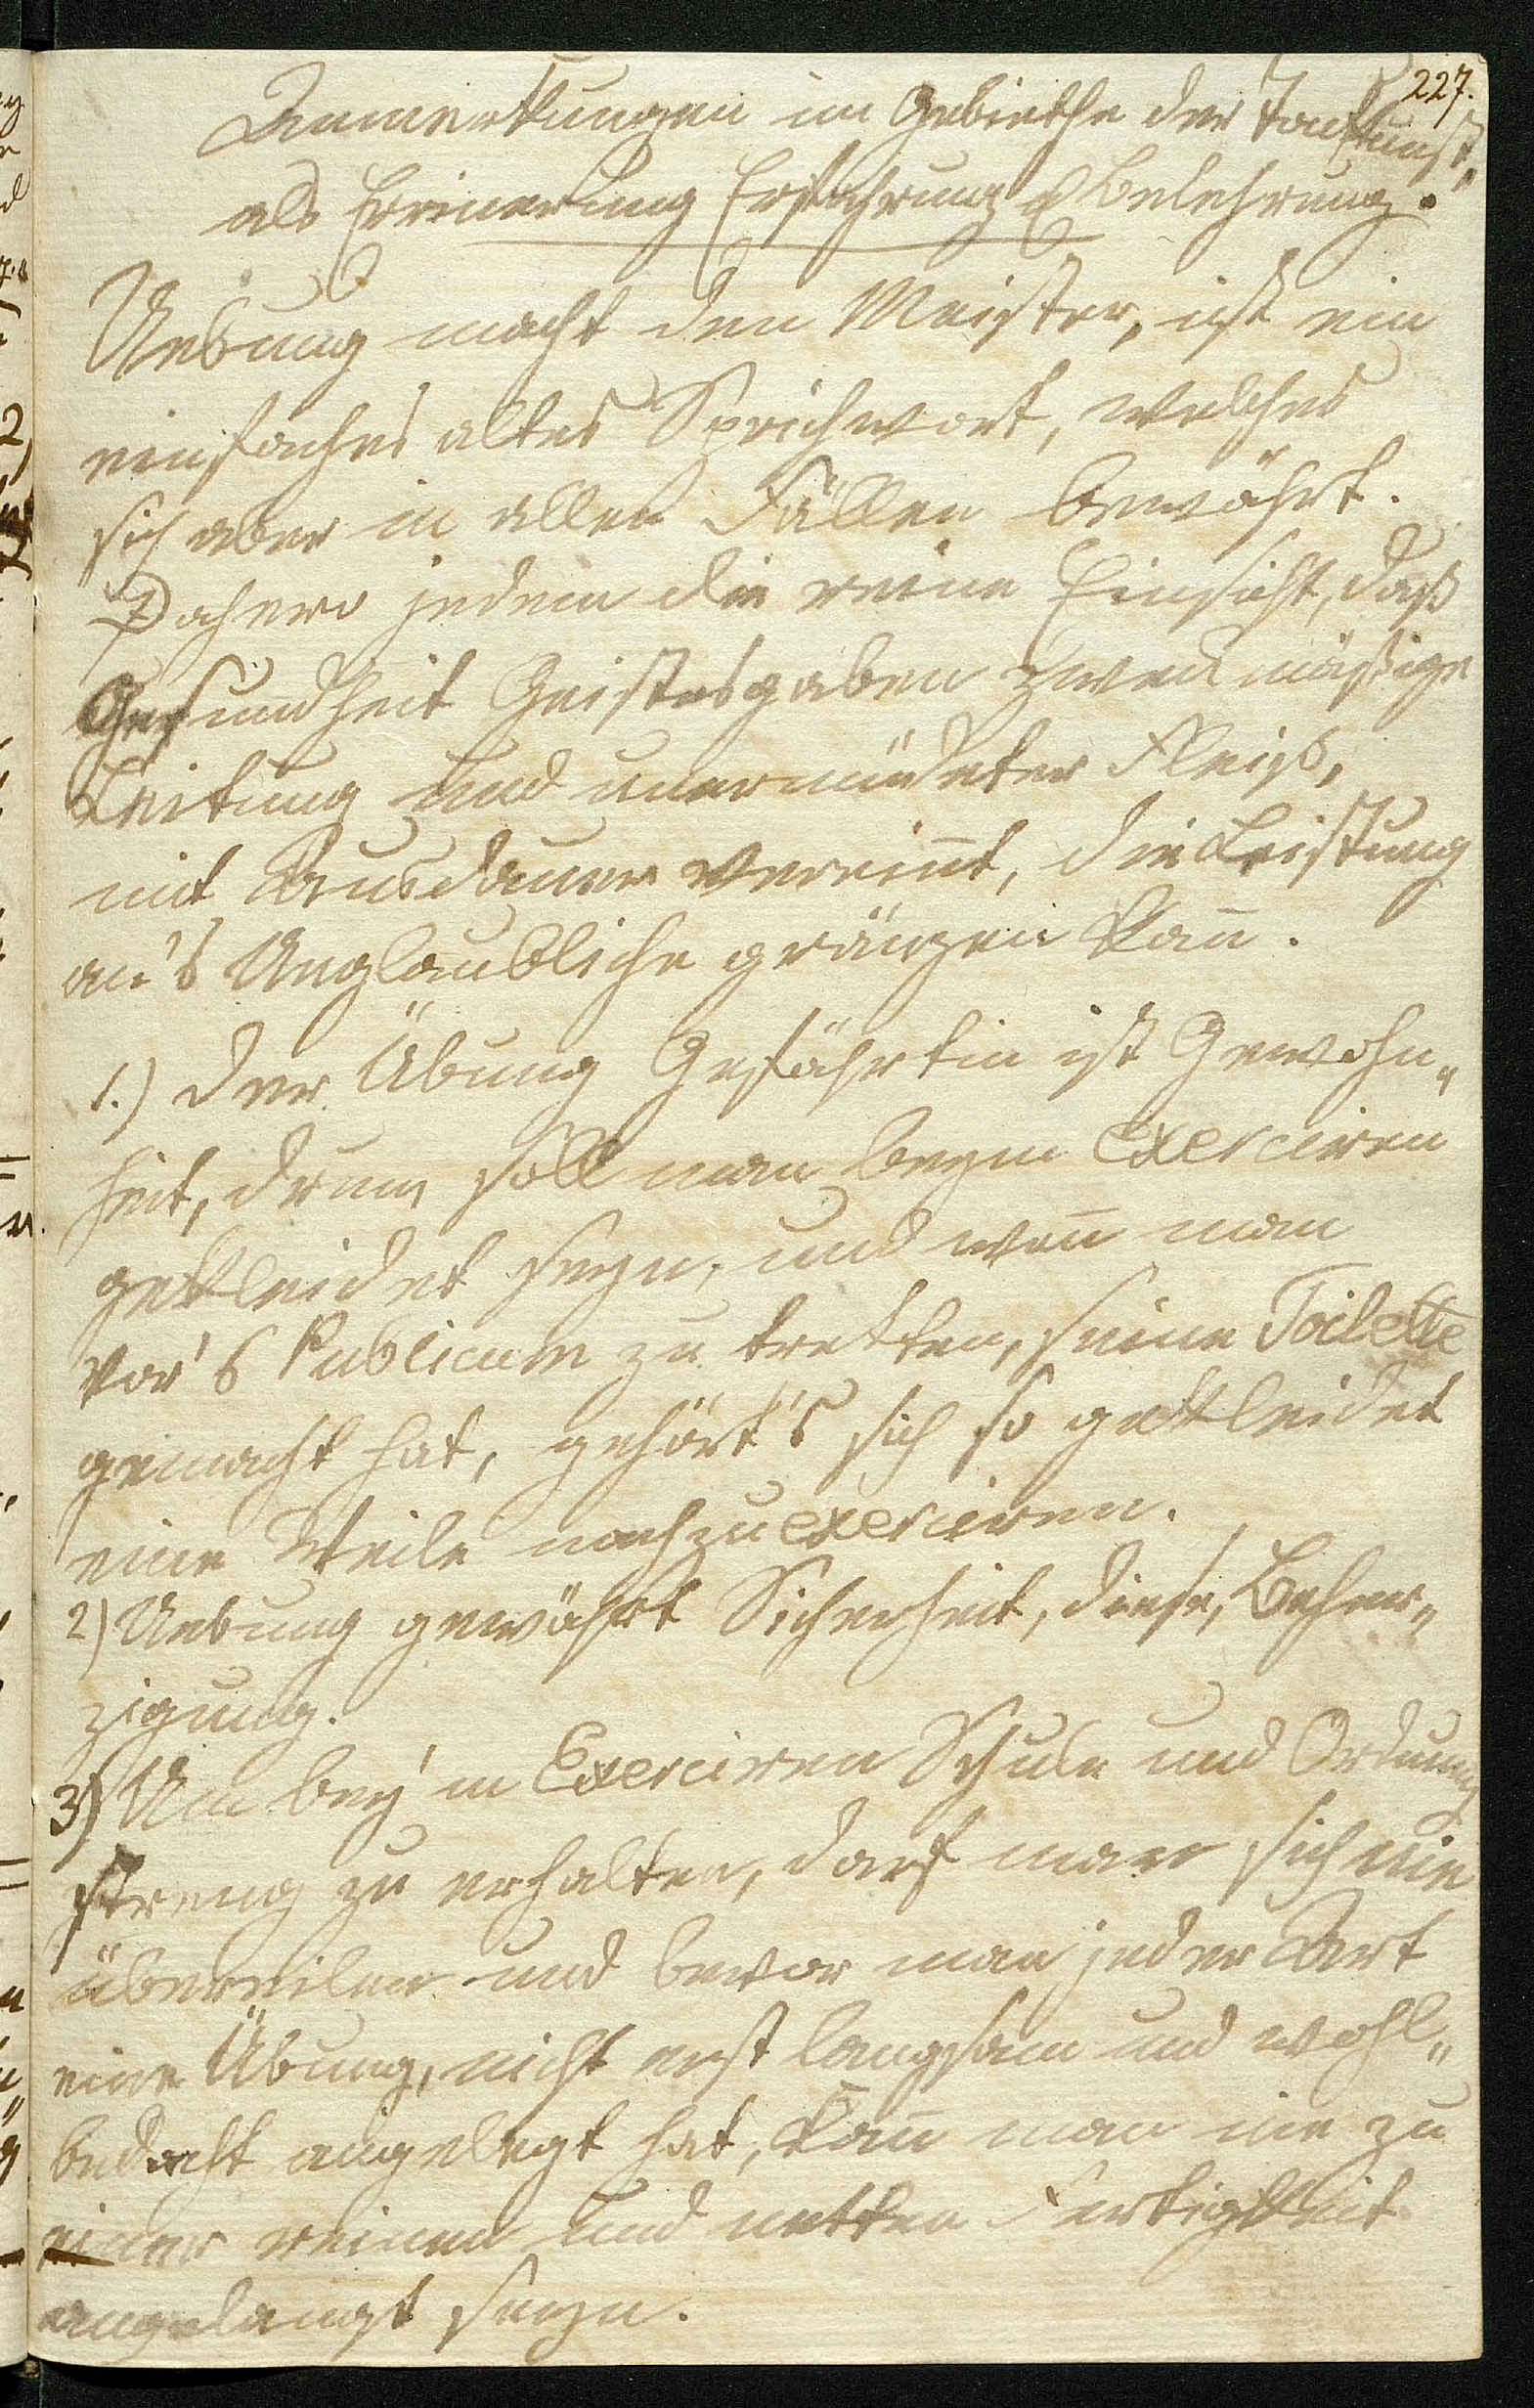 227.
Anmerkungen im Gebiethe der Tonkunst,
als Erinerung Erfahrung & Belehrung.
Uebung macht den Meister, ist ein
einfaches altes Sprichwort, welches
sich aber in allen Fällen bewährt.
Dahero jedem die reine Einsicht, daß
Gesundheit Geistesgaben zweckmäßige
Leitung und unermüdeter Fleiß,
mit Ausdauer vereint, die Leistung
an's Unglaubliche gränzen kan̄.
1.) Der Übung Gefährtin ist Gewohn„
heit, drum soll man beym Exerciren
gekleidet seyn, und wen̄ man
vor's Publicum zu tretten, seine Toilette
gemacht hat, gehört's sich so gekleidet
eine Weile nachzuexerciren.
2) Uebung gewährt Sicherheit, diese, Beher„
zigung.
3) Um bey'm Exerciren Schule und Ordnung
streng zu erhalten, darf man sich nie
übereilen und bevor man jeder Art
eine Übung, nicht erst langsam und wohl„
bedacht angelegt hat, kan̄ man nie zu
einer reinen und netten Fertigkeit
angelangt seyn.